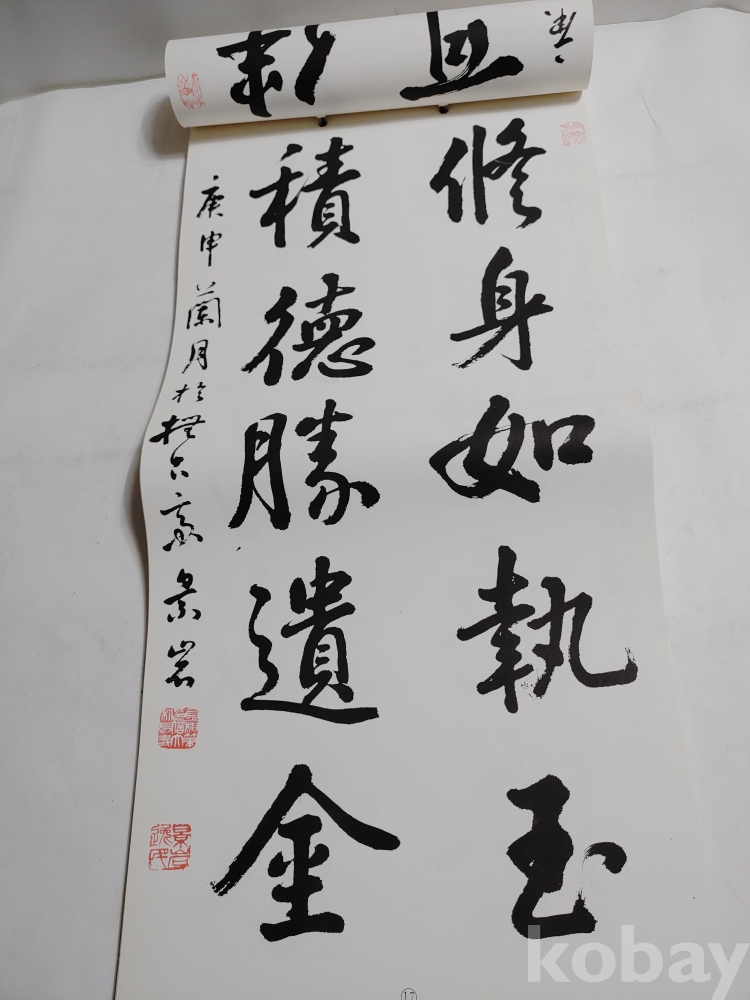 修身如執玉
積德勝遺金
庚申蘭月於
景岩
17
kobay